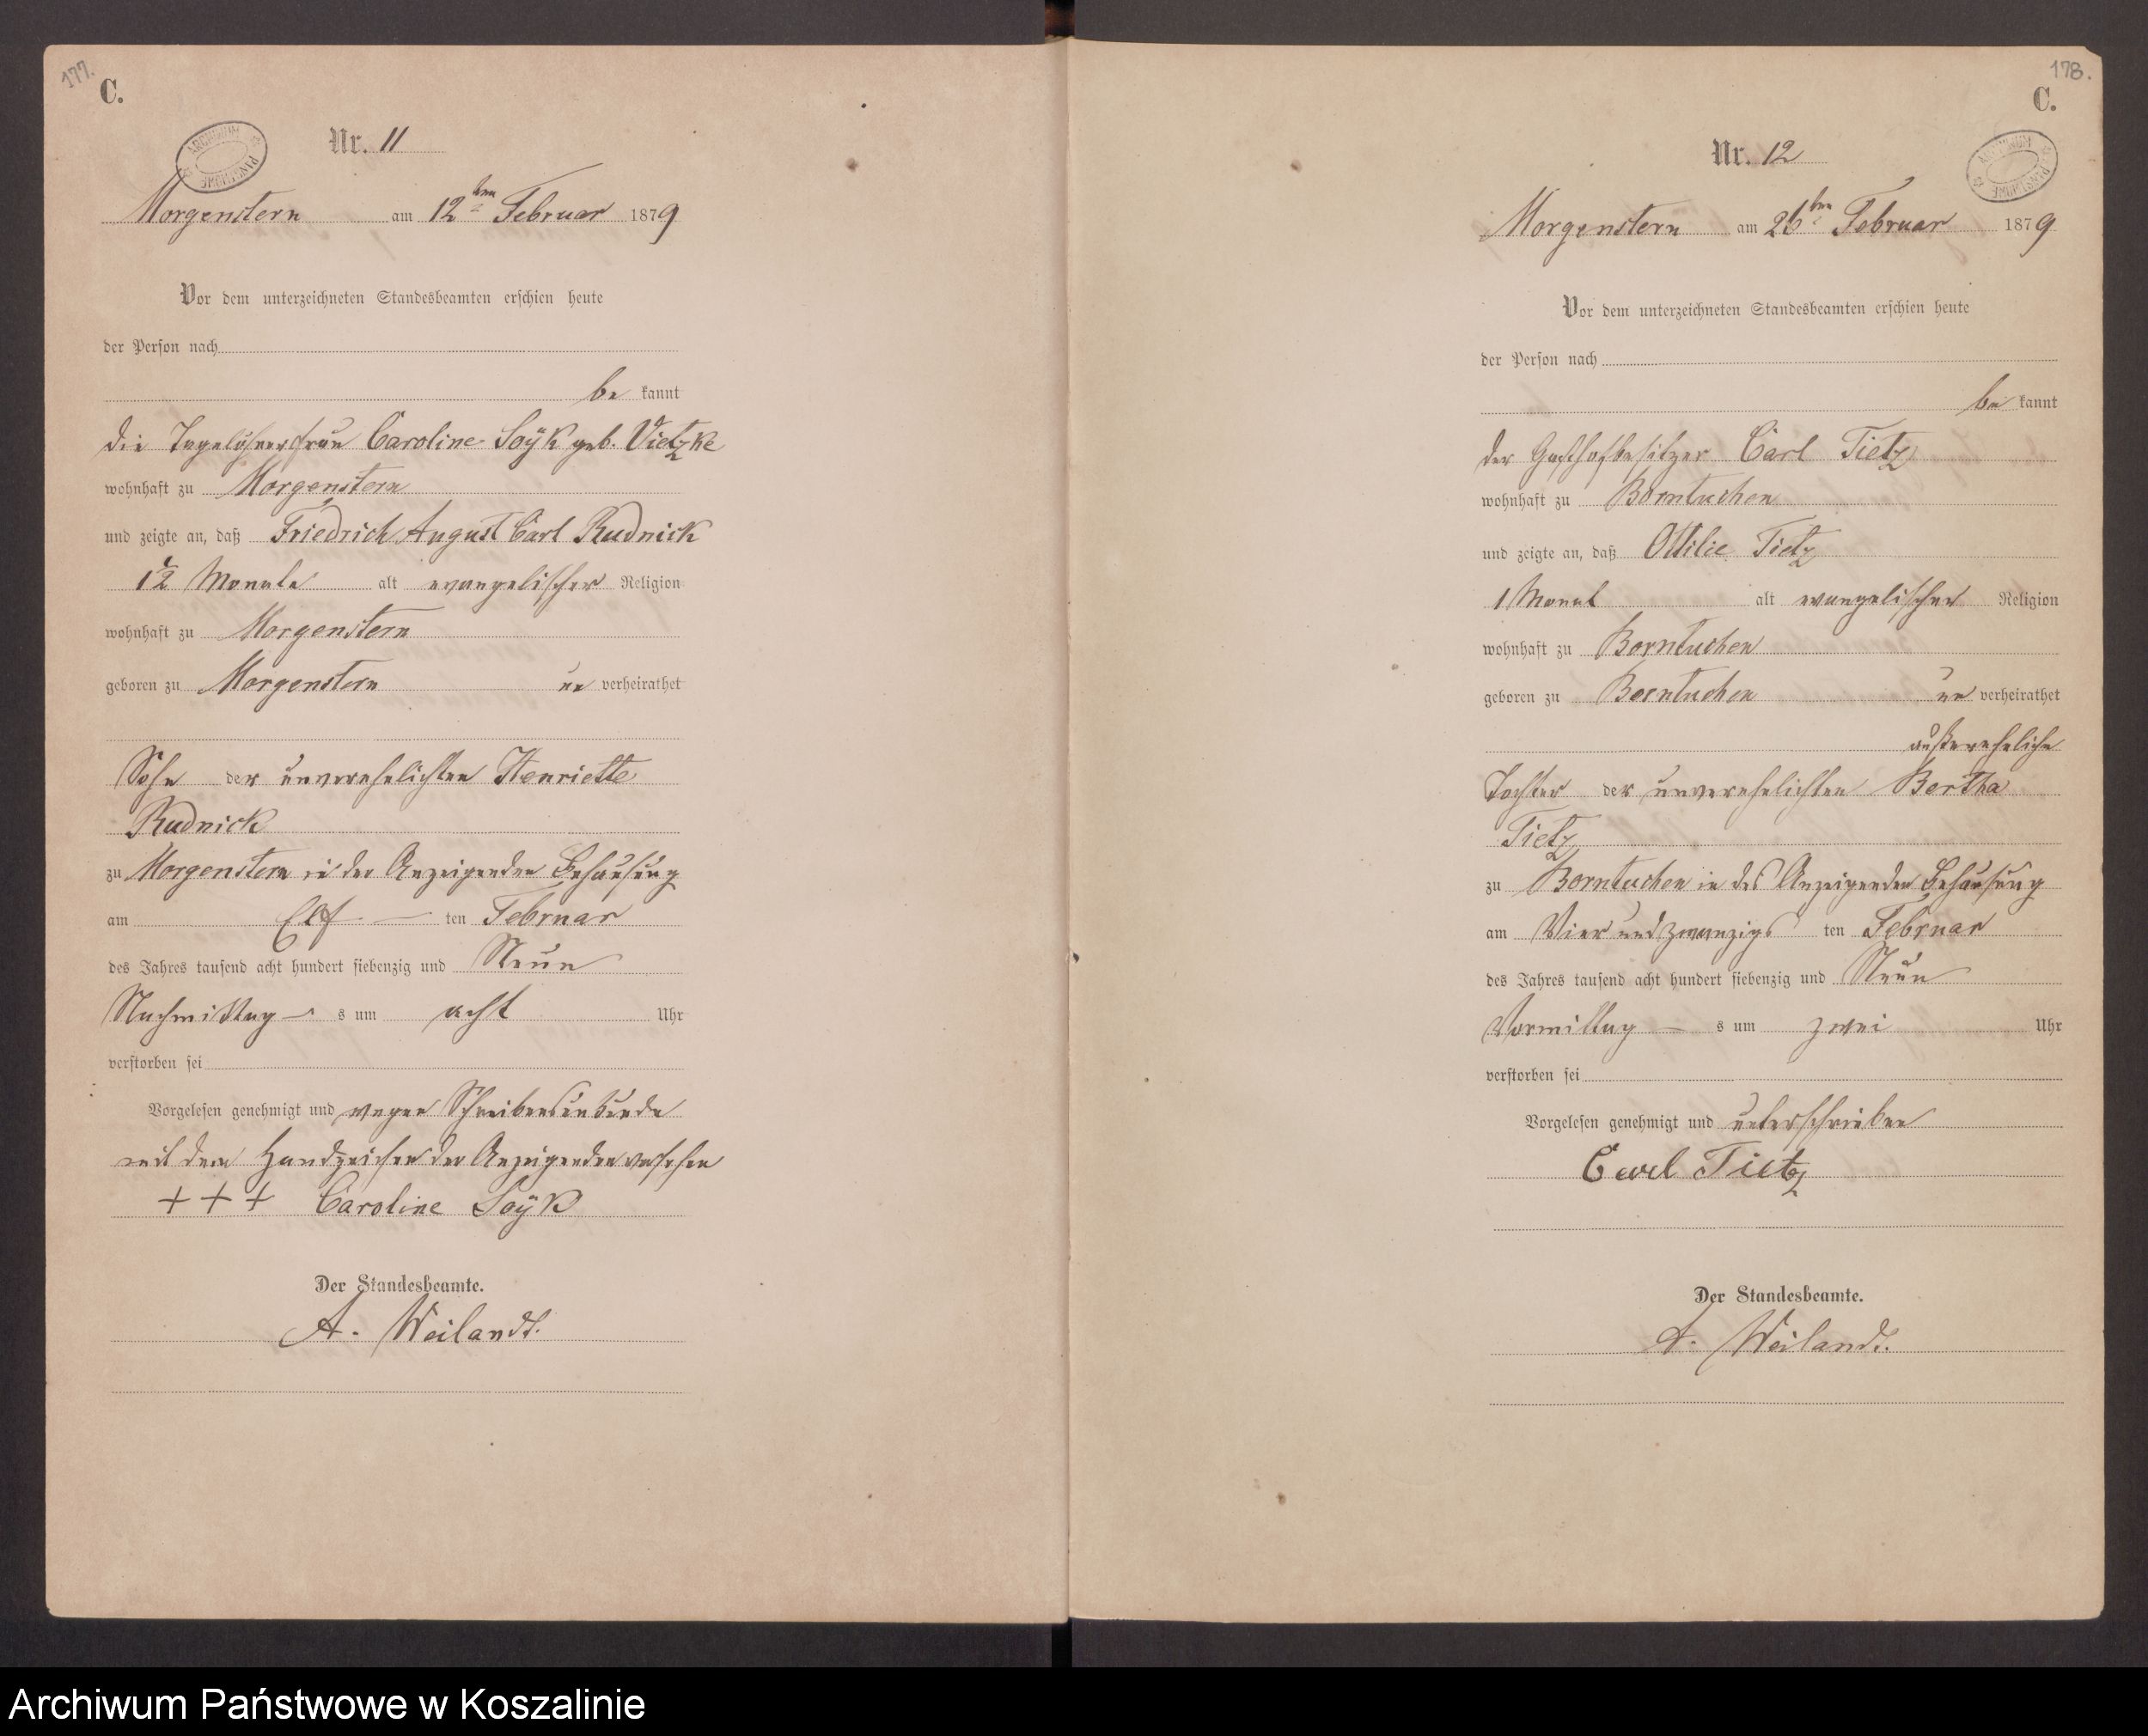 177.
C.
ARCHIWUM PAŃSTWOWE
Nr. 11
Morgenstern am 12ten Februar 1879
Vor dem unterzeichneten Standesbeamten erschien heute
der Person nach
be kannt
die Tagelöhnerfrau Caroline Soÿk geb. Vietzke
wohnhaft zu Morgenstern
und zeigte an, daß Friedrich August Carl Rudnick
1½ Monate alt evangelischer Religion
wohnhaft zu Morgenstern
geboren zu Morgenstern un verheirathet
Sohn der unverehelichten Henriette
Rudnick
zu Morgenstern in der Anzeigenden Behausung
am Elf ten Februar
des Jahres tausend acht hundert siebenzig und Neun
Nachmittag s um acht Uhr
verstorben sei
Vorgelesen genehmigt und wegen Schreibensunkunde
mit dem Handzeichen der Anzeigenden versehen
+ + + Caroline Soÿk
Der Standesbeamte.
A. Weilandt.
178.
C.
ARCHIWUM PAŃSTWOWE
Nr. 12
Morgenstern am 26ten Februar 1879
Vor dem unterzeichneten Standesbeamten erschien heute
der Person nach
be kannt
der Gasthofbesitzer Carl Tietz
wohnhaft zu Borntuchen
und zeigte an, daß Ottilie Tietz
1 Monat alt evangelischer Religion
wohnhaft zu Borntuchen
geboren zu Borntuchen un verheirathet
außereheliche
Tochter der unverehelichten Bertha
Tietz
zu Borntuchen in des Anzeigenden Behausung
am Vier und zwanzigs ten Februar
des Jahres tausend acht hundert siebenzig und Neun
Vormittag s um zwei Uhr
verstorben sei
Vorgelesen genehmigt und unterschrieben
Carl Tietz
Der Standesbeamte.
A. Weilandt.
Archiwum Państwowe w Koszalinie